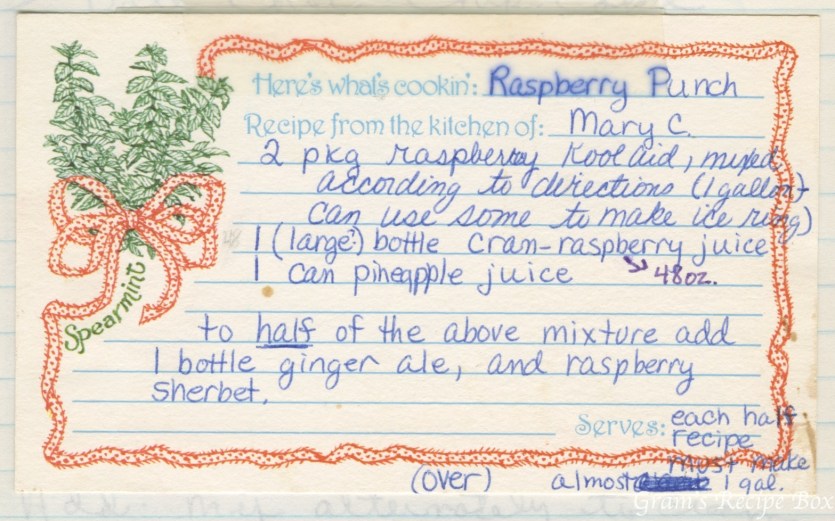 Here's what's cookin': Raspberry Punch
Recipe from the kitchen of: Mary C.
2 pkg raspberry Koolaid, mixed
according to directions (1 gallon -
can use some to make ice ring)
1 (large?) bottle cran-raspberry juice
1 can pineapple juice → 48 oz.
to half of the above mixture add
1 bottle ginger ale, and raspberry
sherbet.
Spearmint
Serves: each half
recipe
must make
almost 1 gal.
(over)
Gram's Recipe Box